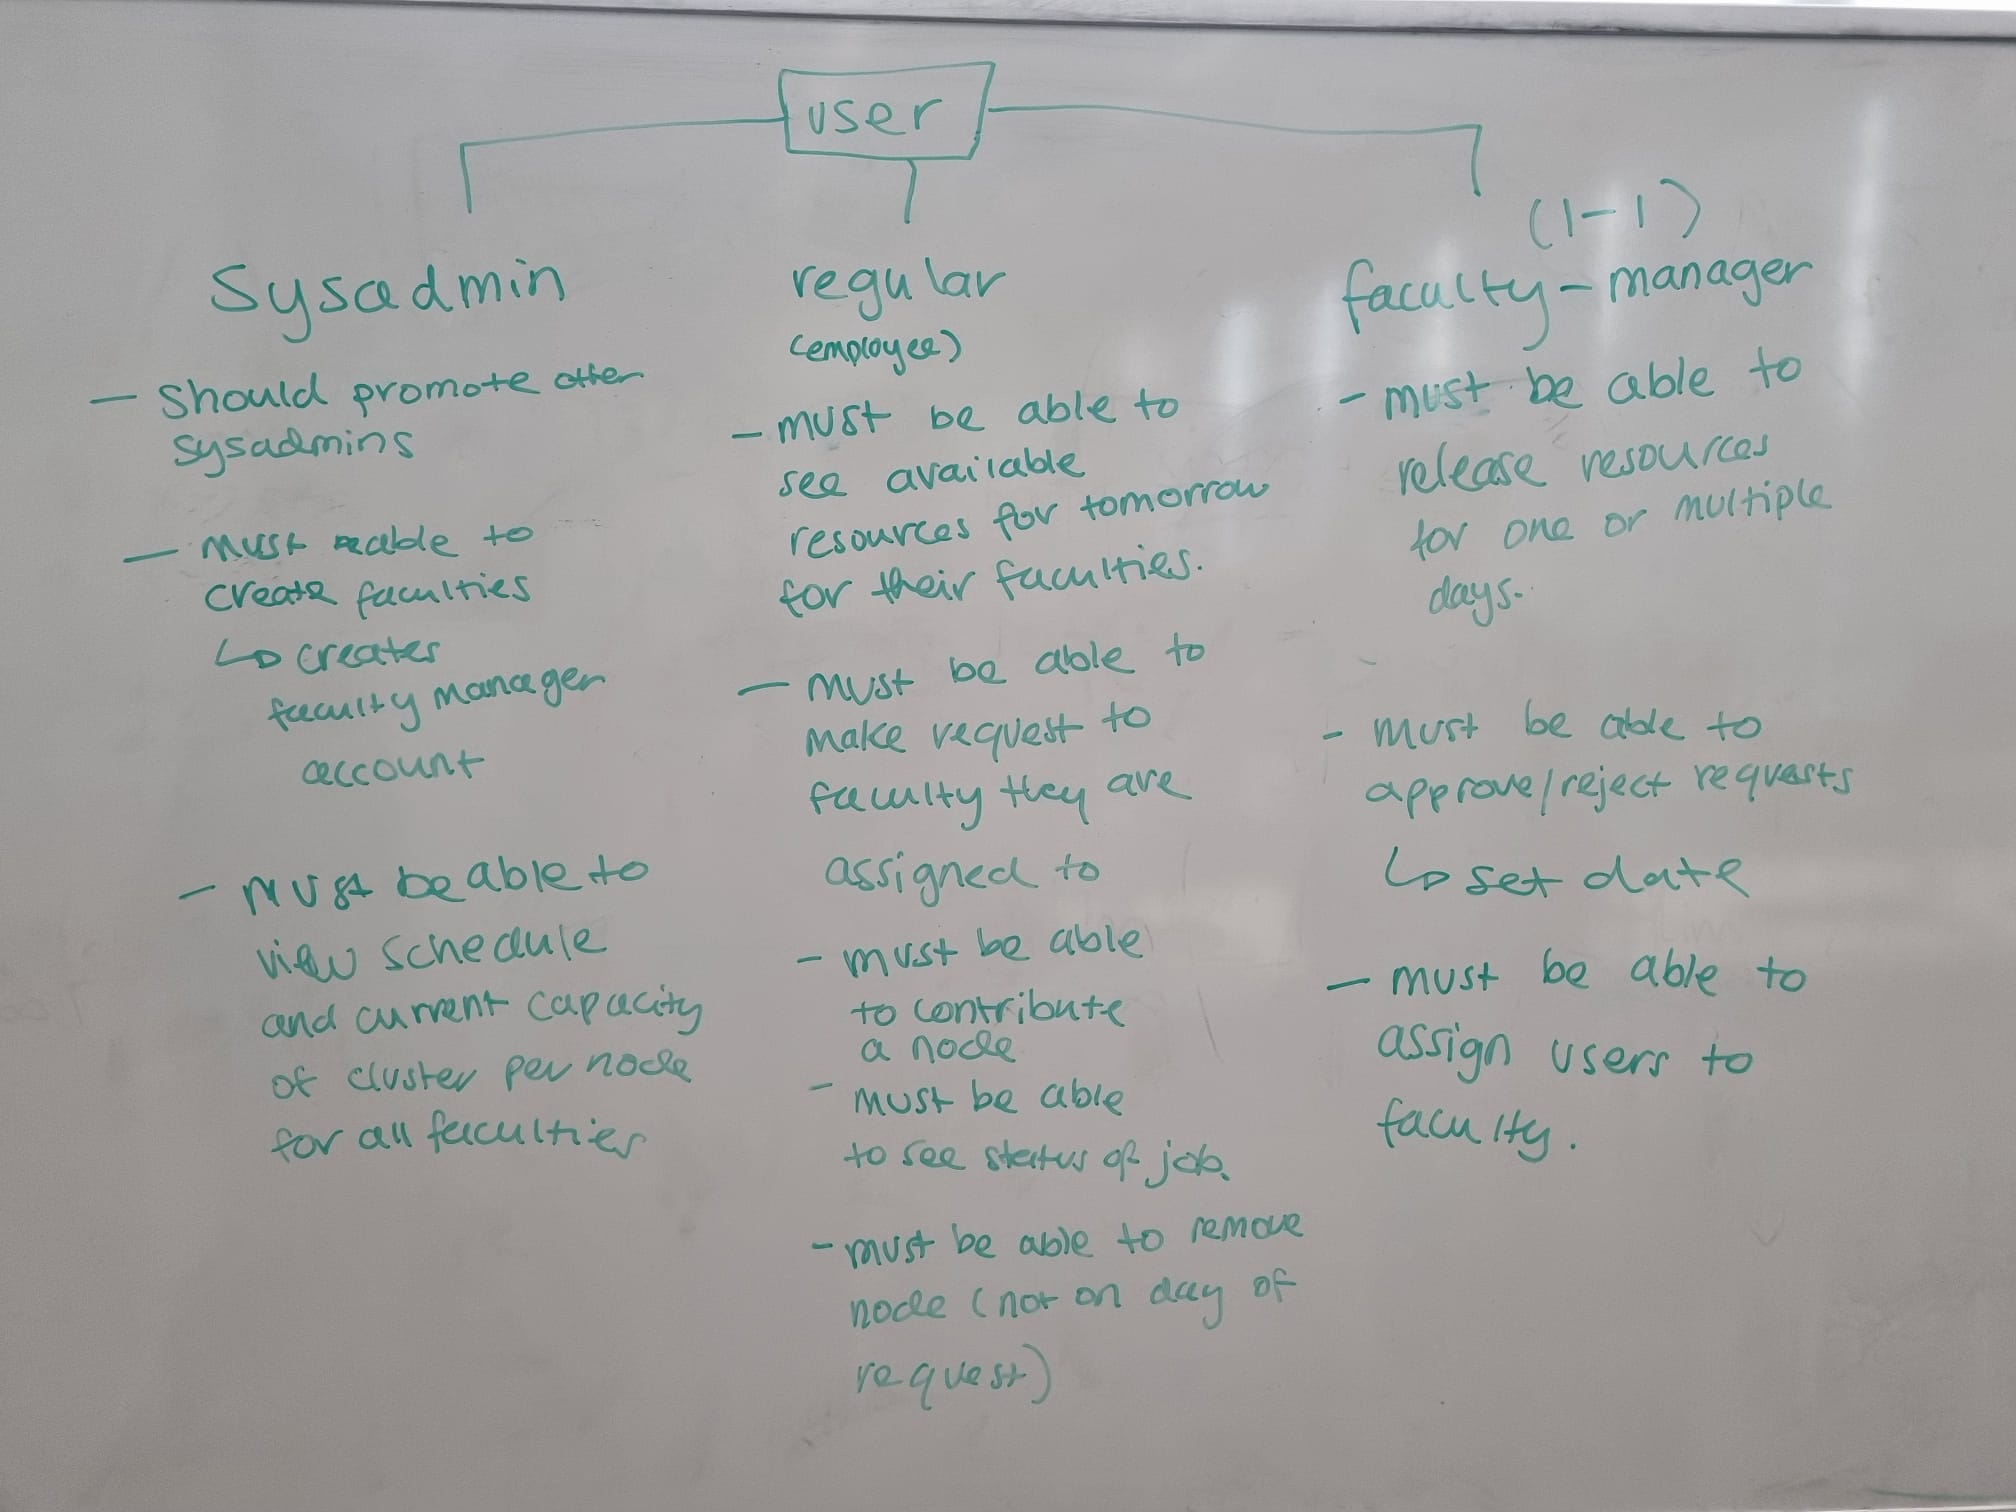 user
Sysadmin
- Should promote other
sysadmins
- must be able to
create faculties
↳ creates
faculty manager
account
- must be able to
view schedule
and current capacity
of cluster per node
for all faculties
regular
(employee)
- must be able to
see available
resources for tomorrow
for their faculties.
- must be able to
make request to
faculty they are
assigned to
- must be able
to contribute
a node
- must be able
to see status of job.
- must be able to remove
node (not on day of
request)
(1-1)
faculty-manager
- must be able to
release resources
for one or multiple
days.
- must be able to
approve/reject requests
↳ set date
- must be able to
assign users to
faculty.